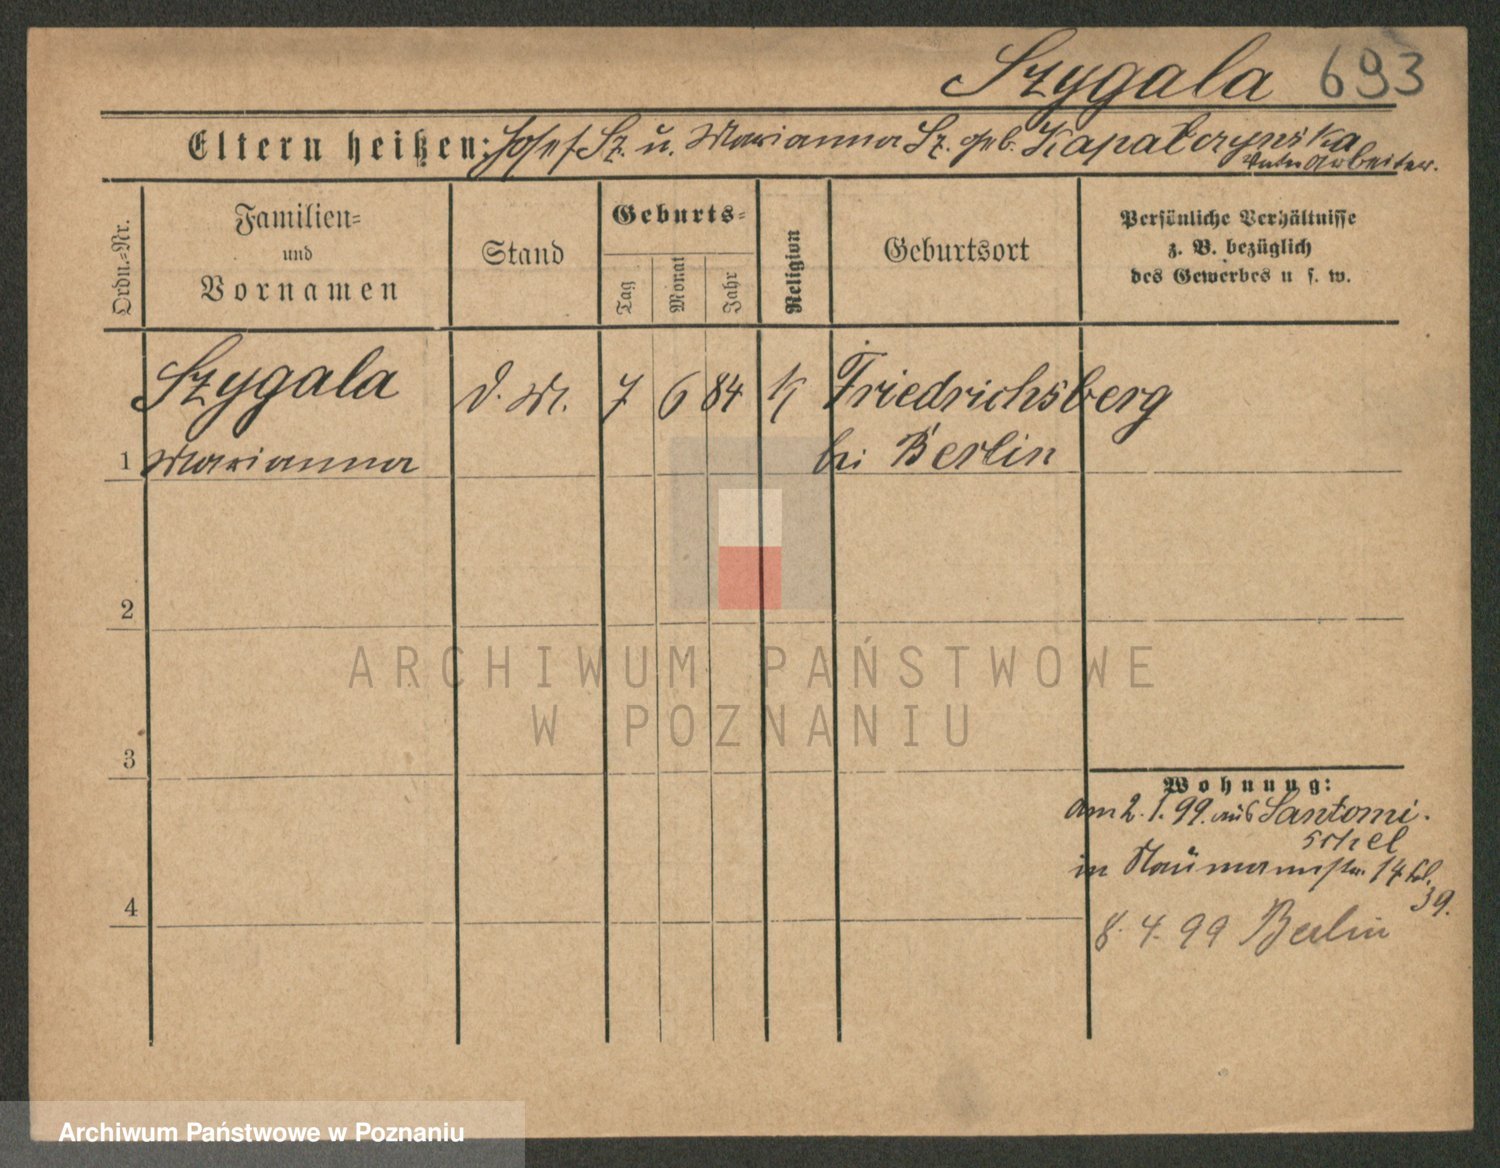 Szygala 693
Eltern heißen: Josef Sz. u. Marianna Sz. geb. Kapałczynska
Vater Arbeiter.
Ordn.-Nr.
Familien-
und
Vornamen
Stand
Geburts-
Tag
Monat
Jahr
Religion
Geburtsort
Persönliche Verhältnisse
z. B. bezüglich
des Gewerbes u s. w.
Szygala d. M. 7 6 84 K Friedrichsberg
1 Marianna bei Berlin
2
3
4
Wohnung:
am 2. 1. 99. aus Santomi-
schel
in Naumannstr. 14 bl.
39.
8. 4. 99 Berlin
ARCHIWUM PAŃSTWOWE
W POZNANIU
Archiwum Państwowe w Poznaniu